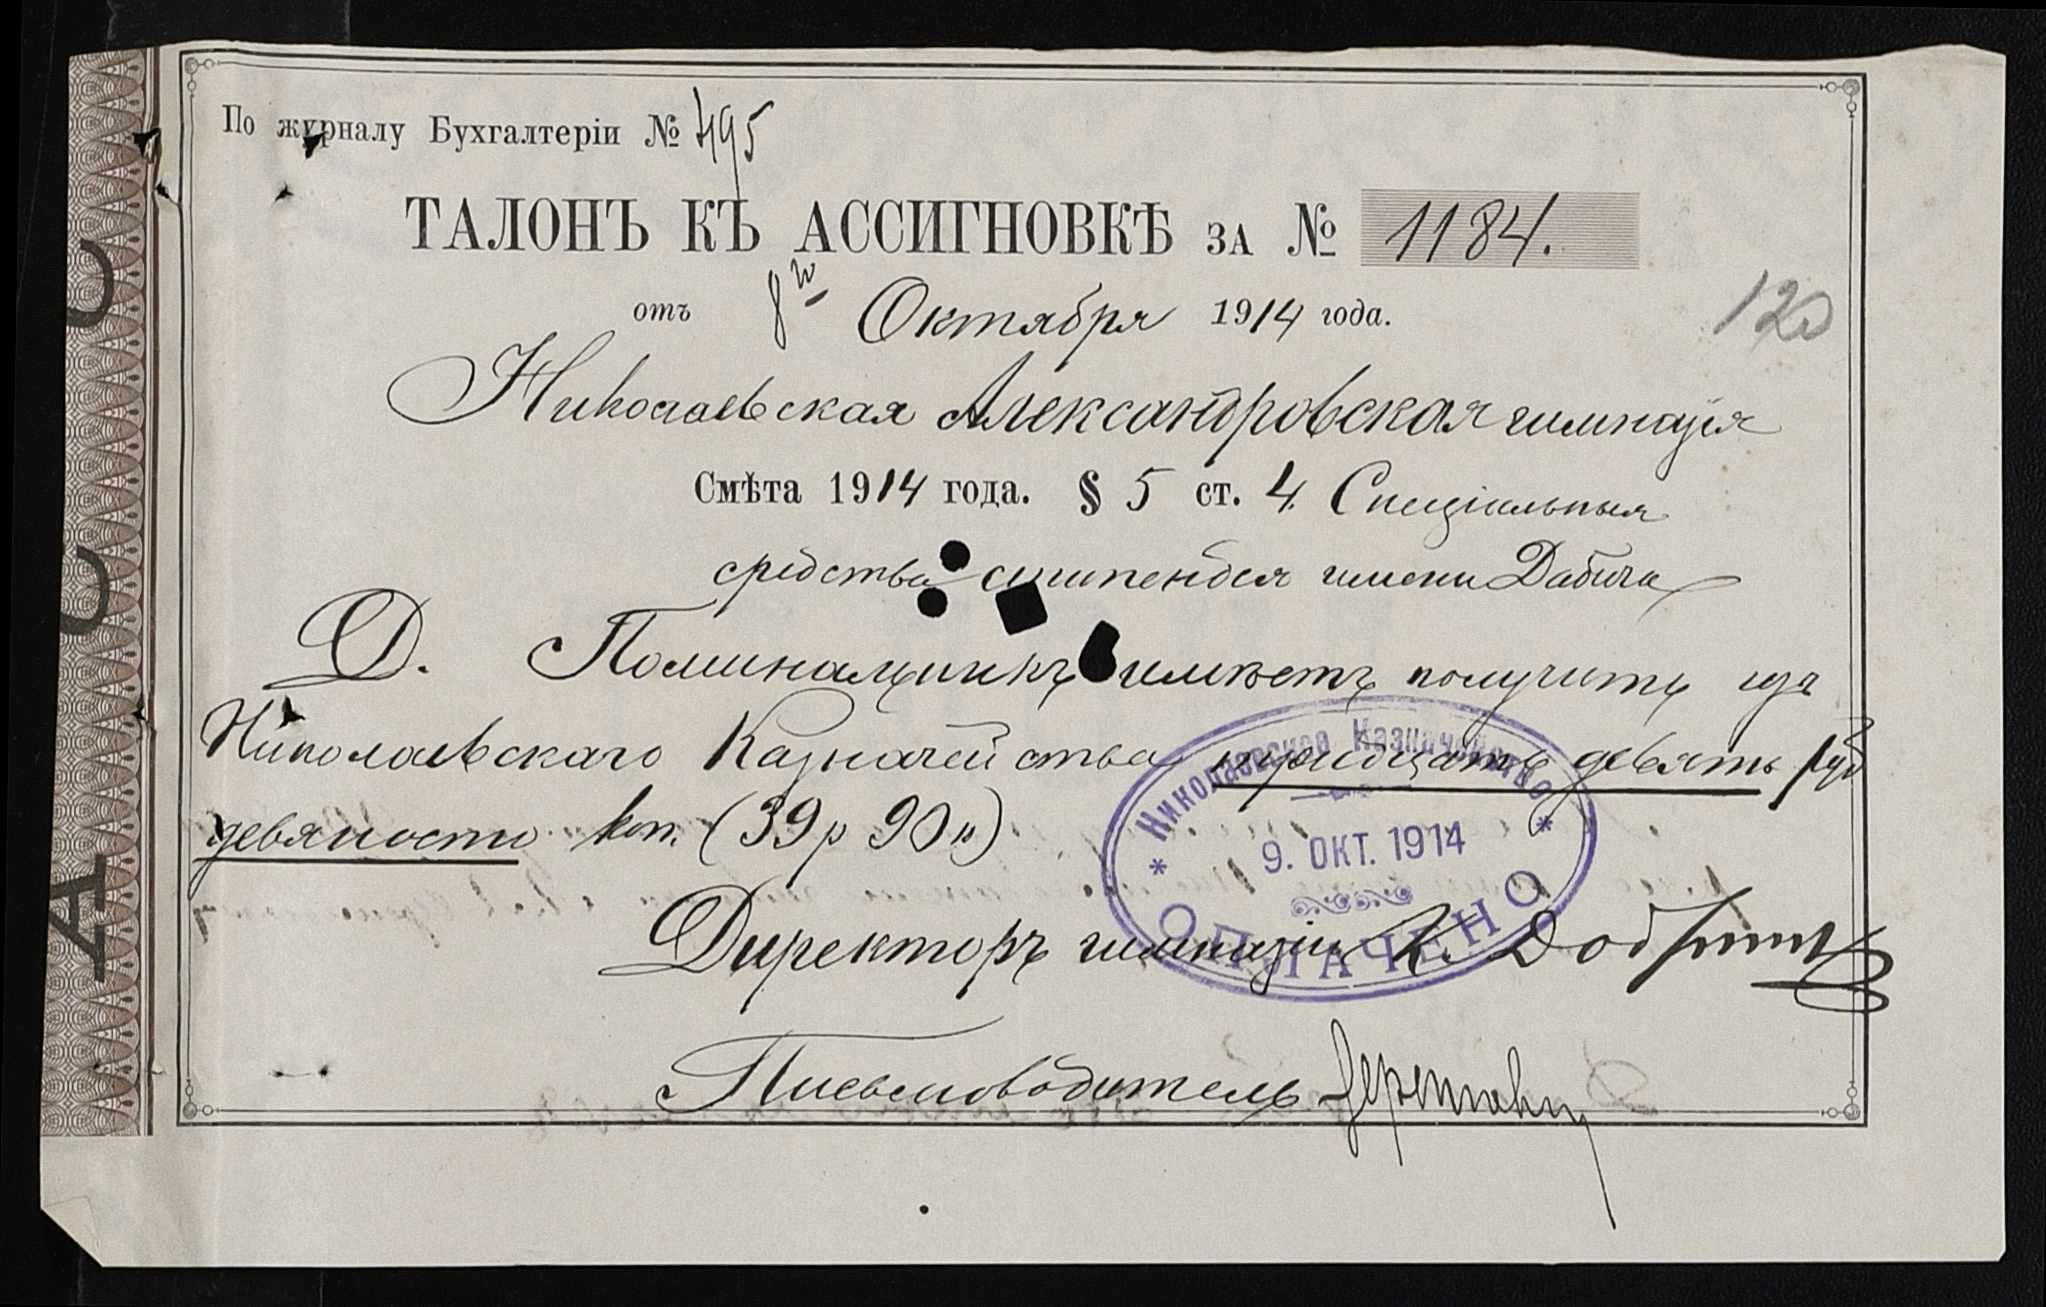 По журналу Бухгалтеріи № 495
ТАЛОНЪ КЪ АССИГНОВКѢ ЗА № 1184.
отъ 8го Октября 1914 года.
120
Николаевская Александровская гимназія
Смѣта 1914 года. § 5 ст. 4. Спеціальныя
средства стипендія имени Дабича
Д. имѣетъ получить изъ
Николаевскаго Казначейства тридцать девять руб
девяносто коп. (39 р 90 к)
Николаевское Казначейство
9. ОКТ. 1914
ОПЛАЧЕНО
Директоръ гимназіи
Письмоводитель
А С С